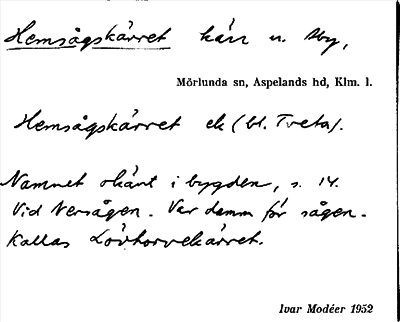 Hemsågskärret kärr n. Åby,
Mörlunda sn, Aspelands hd, Klm. l.
Hemsågskärret ek (bl. Tveta).
Namnet okänt i bygden, s. 14.
Vid Nersågen. Var damm för sågen.
Kallas Lövhorvekärret.
Ivar Modéer 1952